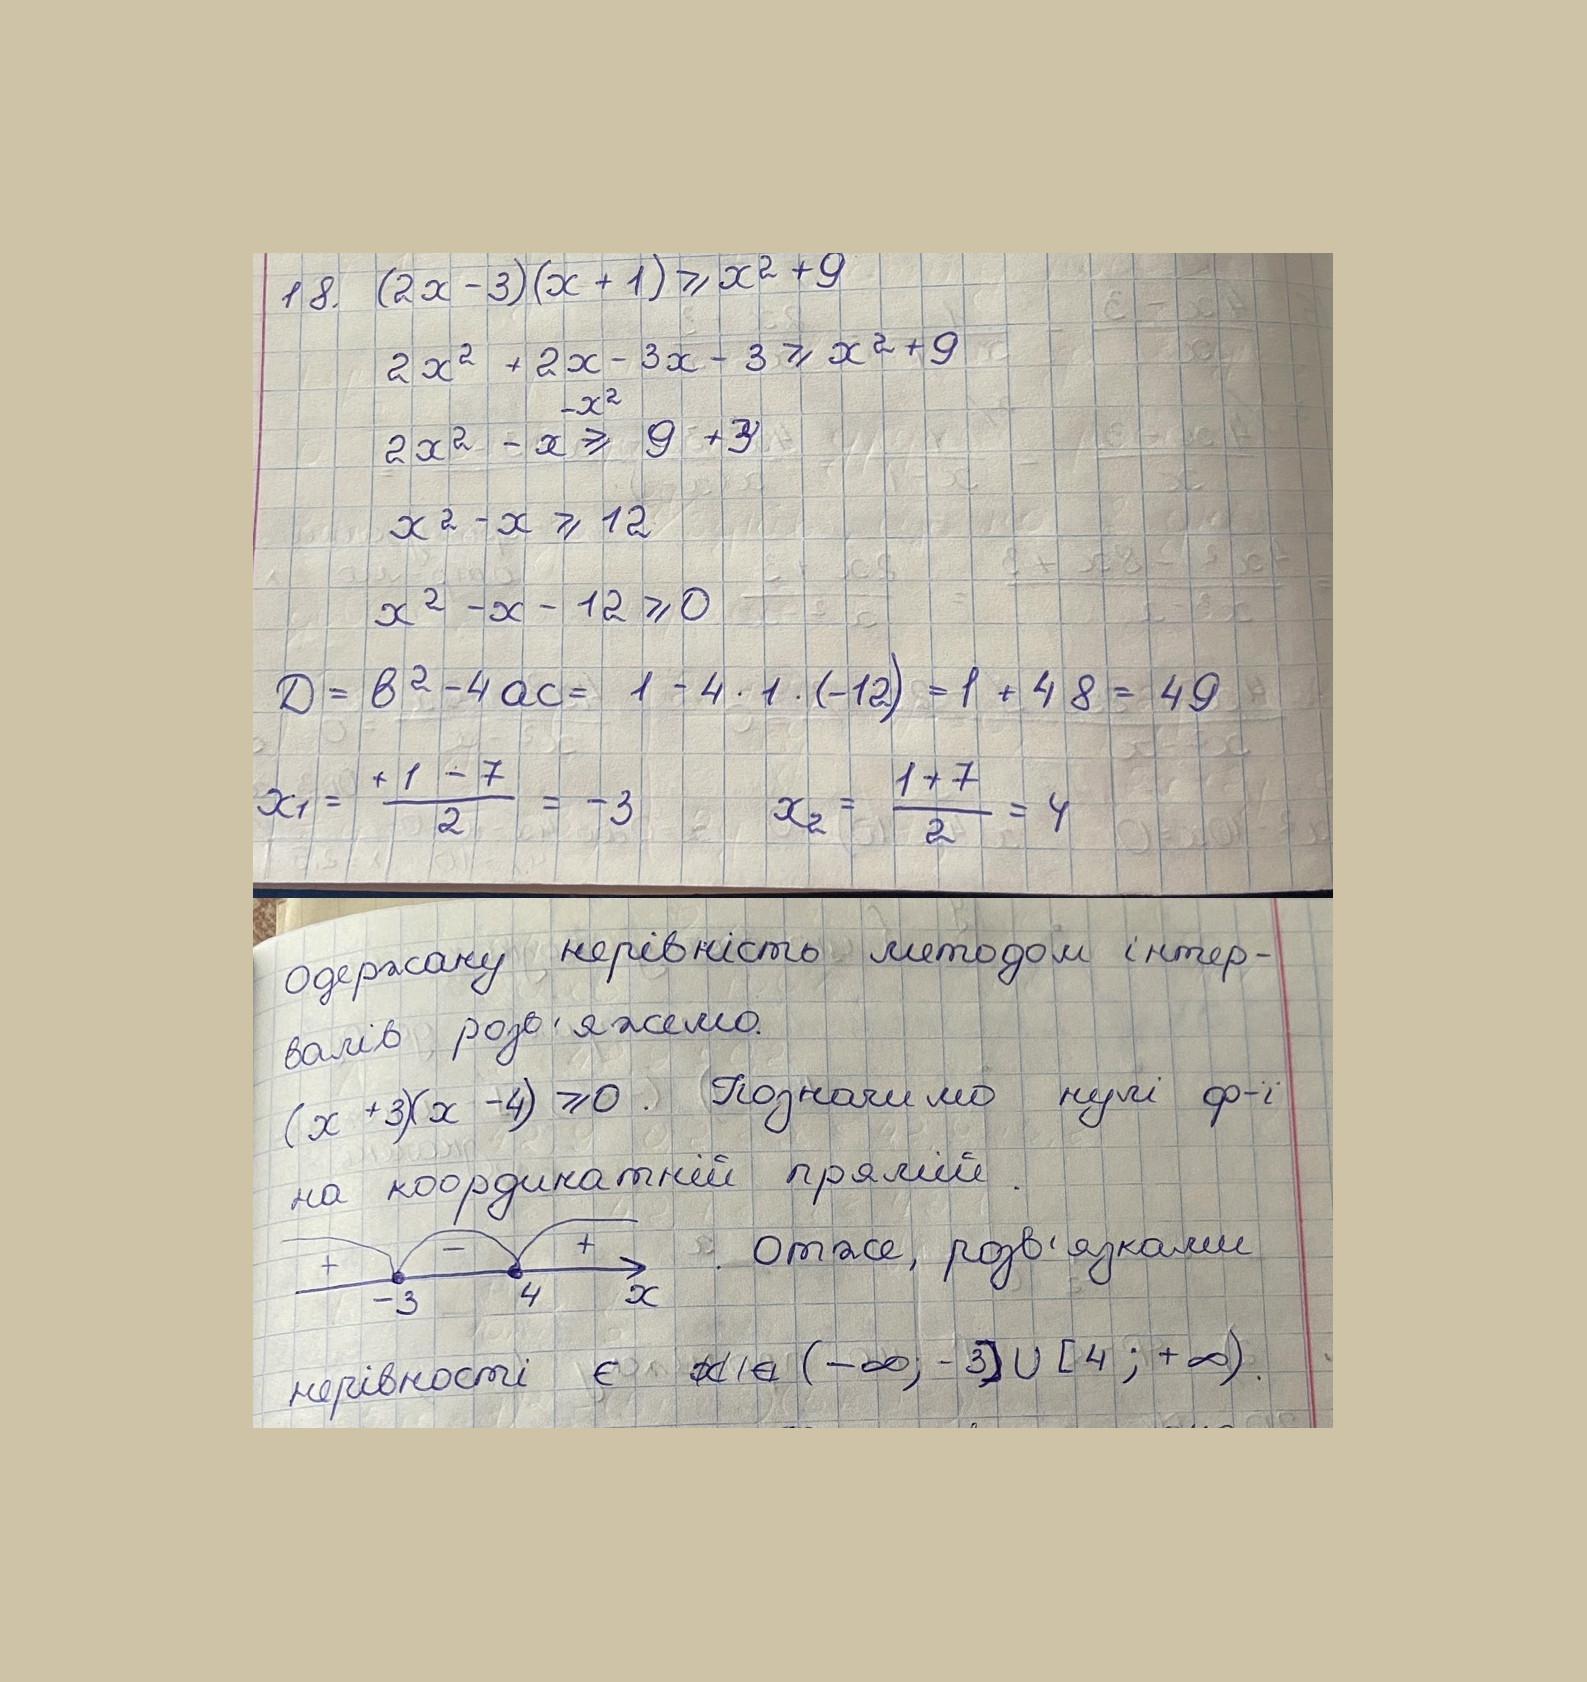 18. (2x - 3)(x + 1) ⩾ x² + 9
2x² + 2x - 3x - 3 ⩾ x² + 9
-x²
2x² - x ⩾ 9 + 3
x² - x ⩾ 12
x² - x - 12 ⩾ 0
D = b² - 4ac = 1 - 4 · 1 · (-12) = 1 + 48 = 49
x₁ = (+1 - 7)/2 = -3     x₂ = (1 + 7)/2 = 4
одержану нерівність методом інтер-
валів розв'яжемо.
(x + 3)(x - 4) ⩾ 0. Позначимо нулі ф-ї
на координатній прямій.
+ - +
-3 4 x
. Отже, розв'язками
нерівності є (-∞; -3] ∪ [4; +∞).